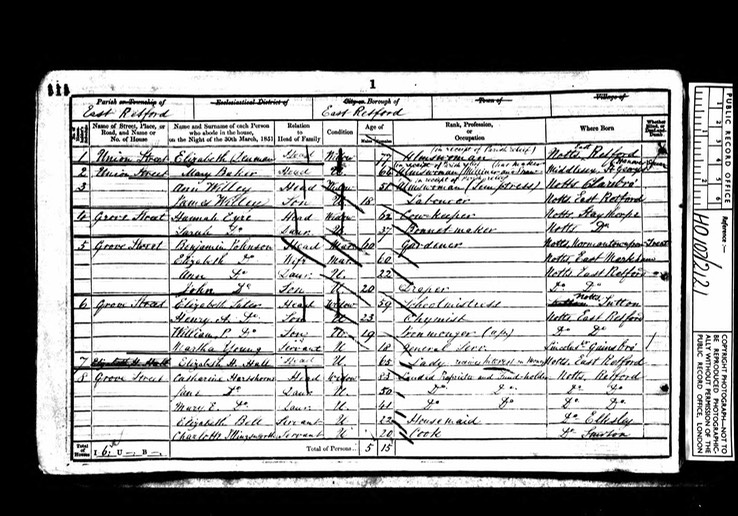 1
Parish or Township of Ecclesiastical District of City or Borough of Town of Village of
East Retford East Retford
Name of Street, Place, or Road, and Name or No. of House Name and Surname of each Person who abode in the house, on the Night of the 30th March, 1851 Relation to Head of Family Condition Age of Males Females Rank, Profession, or Occupation Where Born Whether Blind, or Deaf-and-Dumb
(in receipt of Parish relief)
1 Union Street Elizabeth Head Widow 77 Almswoman Notts, East Retford
2 Union Street Mary Baker Head U 66 Almswoman Middlesex St George
3 Ann Willey Head Widow 51 Almswoman (Sempstress) Notts
James Willey Son U 18 Labourer Notts East Retford
4 Grove Street Hannah Eyre Head Widow 62 Cow-keeper Notts
Sarah Do Daur U 37 Bonnet maker Notts Do
5 Grove Street Benjamin Johnson Head Mar 60 Gardener Notts, Normanton upon Trent
Elizabeth Do Wife Mar 60 Notts, East Markham
Ann Do Daur U 22 Notts East Retford
John Do Son U 20 Draper Do Do
6 Grove Street Elizabeth Head Widow 59 Schoolmistress Notts, Sutton
Henry A. Do Son U 23 Chymist Notts East Retford
William P. Do Son U 19 Ironmonger (App) Do Do
Martha Young Servant U 18 General Serv. Lincoln Gainsbro'
7 Elizabeth H. Hall Head U 65 Lady Notts, East Retford
8 Grove Street Catharine Hartshorne Head Widow 83 Landed Proprietor and Fund-holder Notts, Retford
Jane Do Daur U 50 Do Do Do Do
Mary E. Do Daur U 41 Do Do Do Do
Elizabeth Bell Servant U 22 Housemaid Do Elkesley
Charlotte Servant U 20 Cook Do
Total of Houses I 6 U — B — Total of Persons 5 15
PUBLIC RECORD OFFICE
1 2 3 4 5 6
Reference :-
HO 107/2121
COPYRIGHT PHOTOGRAPH—NOT TO BE REPRODUCED PHOTOGRAPHICALLY WITHOUT PERMISSION OF THE PUBLIC RECORD OFFICE, LONDON